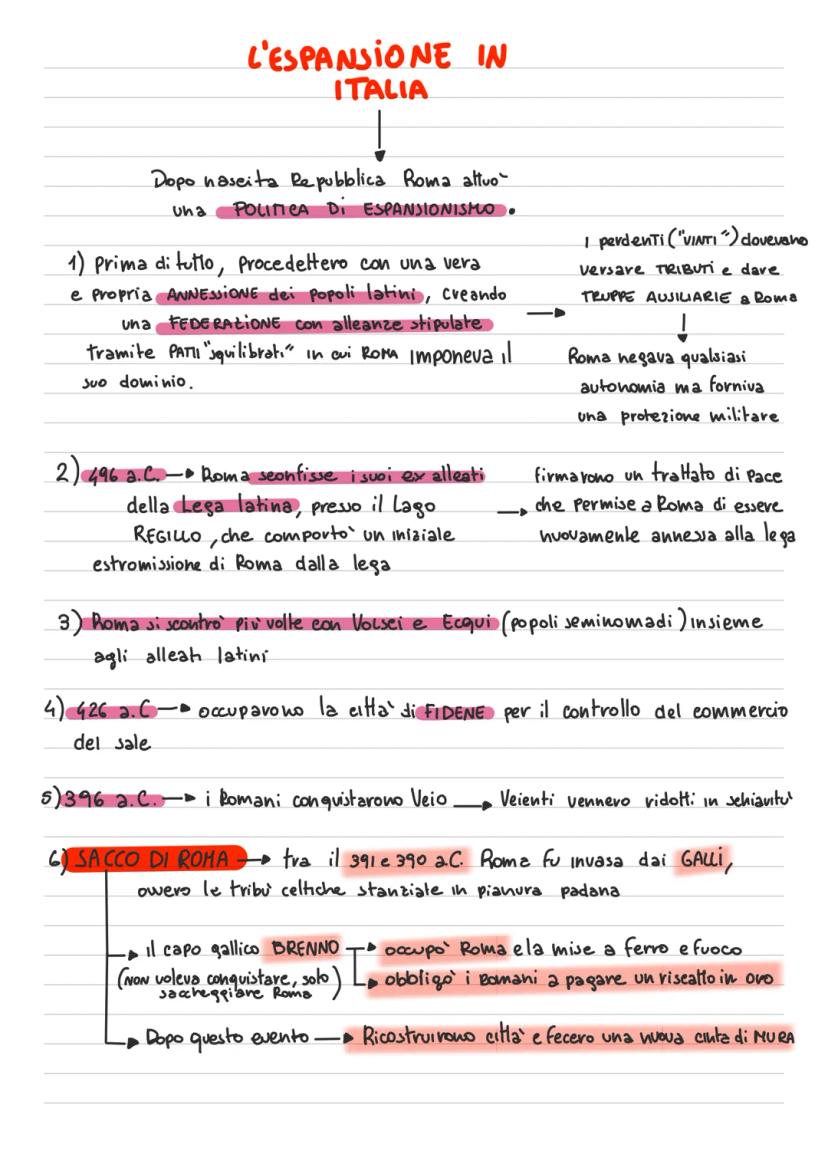 L'ESPANSIONE IN
ITALIA
Dopo nascita Repubblica Roma attuò
una POLITICA DI ESPANSIONISMO.
1) Prima di tutto, procedettero con una vera
e propria ANNESSIONE dei popoli latini, creando
una FEDERAZIONE con alleanze stipulate
tramite PATTI "squilibrati" in cui ROMA IMPONEVA il
suo dominio.
I perdenti ("VINTI") dovevano
versare TRIBUTI e dare
TRUPPE AUSILIARIE a Roma
Roma negava qualsiasi
autonomia ma forniva
una protezione militare
2) 496 a.C. Roma sconfisse i suoi ex alleati
della Lega latina, presso il Lago
REGILLO, che comportò un iniziale
estromissione di Roma dalla lega
firmarono un trattato di pace
che permise a Roma di essere
nuovamente annessa alla lega
3) Roma si scontrò più volte con Volsci e Ecqui (popoli seminomadi) insieme
agli alleati latini
4) 426 a.C occupavono la città di FIDENE per il controllo del commercio
del sale
5) 396 a.C. i Romani conquistarono Veio Veienti vennero ridotti in schiavitù
6) SACCO DI ROMA tra il 391 e 390 a.C. Roma fu invasa dai GALLI,
ovvero le tribù celtiche stanziale in pianura padana
il capo gallico BRENNO occupò Roma e la mise a ferro e fuoco
(NON voleva conquistare, solo
saccheggiare Roma)
obbligò i Romani a pagare un riscatto in oro
Dopo questo evento Ricostruirono città e fecero una nuova cinta di MURA